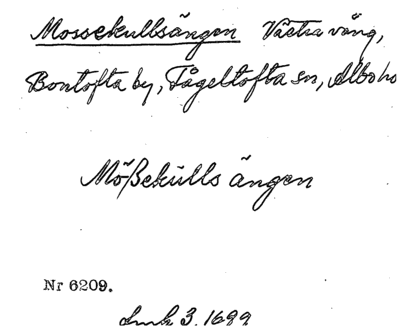 Mossekullsängen Västra vång,
Bontofta by, Fågeltofta sn, Albo ho
Mößekulls ängen
Nr 6209.
Lmk 3. 1699